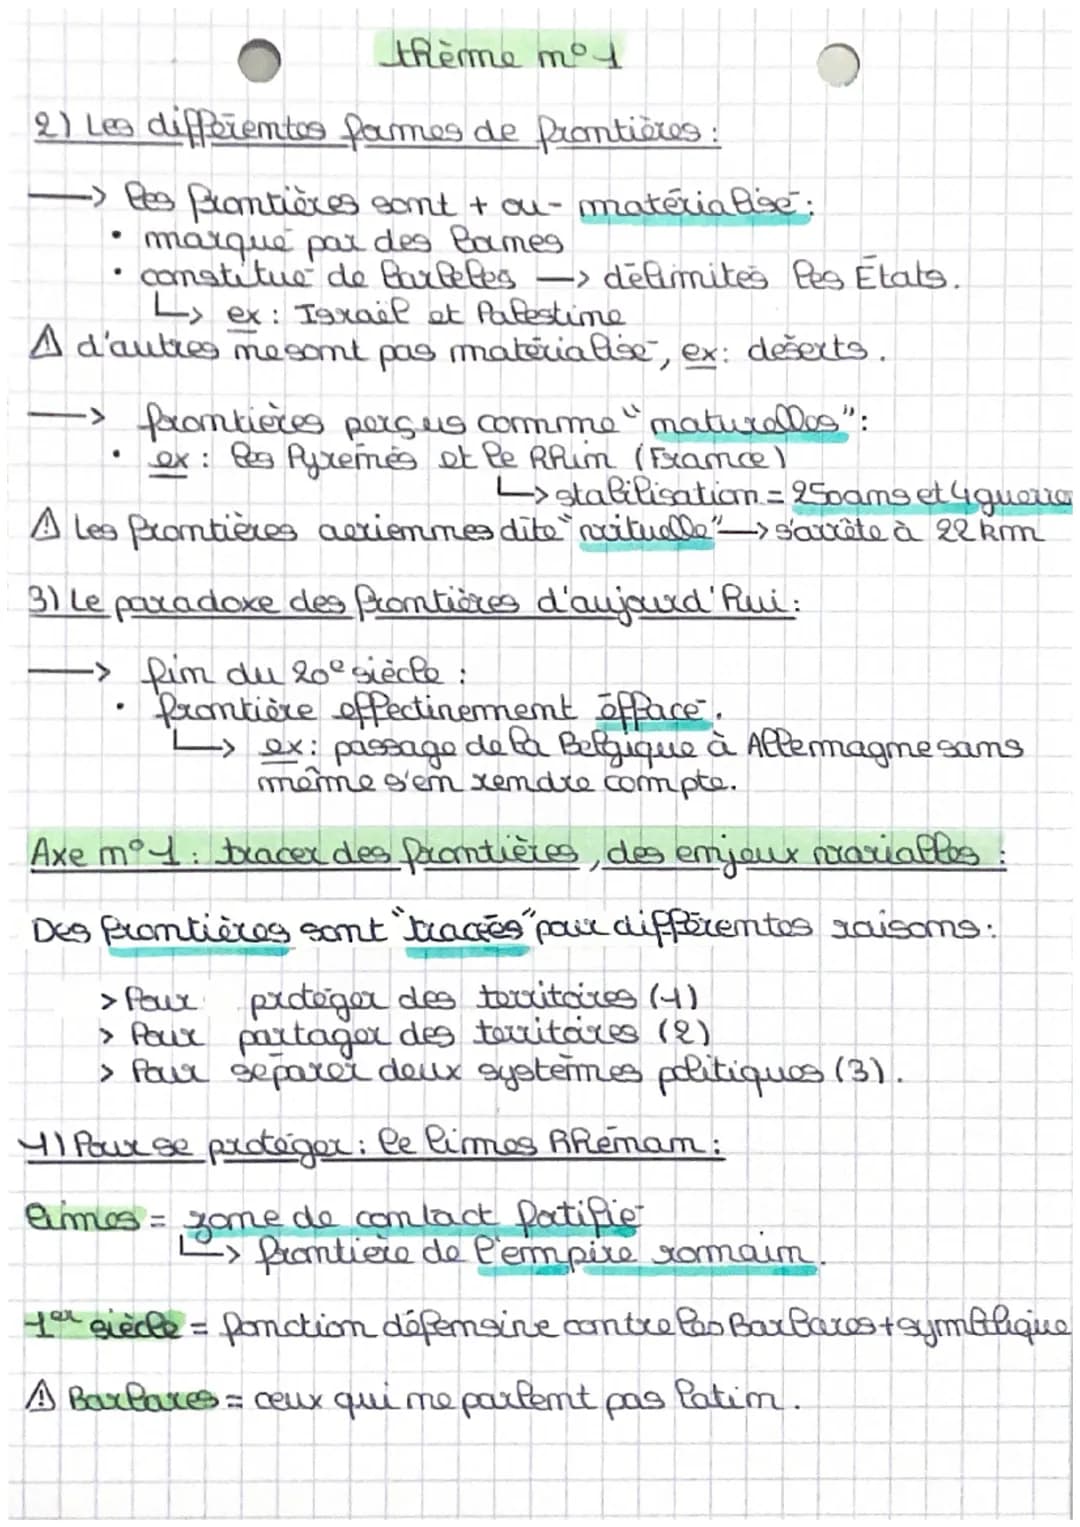 thème n°1
2) Les différentes formes de frontières :
→ les frontières sont + ou - matérialisé :
• marqué par des bornes
• constitué de barbelés → délimités les États.
↳ ex : Israël et Palestine
⚠ d'autres ne sont pas matérialisé, ex : déserts.
→ frontières perçus comme "naturelles" :
• ex : les Pyrénnés et le Rhin (France)
↳ stabilisation = 250ans et 4guerre
⚠ Les frontières aeriennes dite "virtuelle" → s'arrête à 22 km
3) Le paradoxe des frontières d'aujourd'hui :
→ fin du 20e siècle :
• frontière effectivement éffacé.
↳ ex : passage de la Belgique à Allemagne sans
même s'en rendre compte.
Axe n°1 : tracer des frontières, des enjeux variables :
Des frontières sont "tracés" pour différentes raisons :
> Pour protéger des territoires (1)
> Pour partager des territoires (2)
> Pour séparer deux systèmes politiques (3).
1) Pour se protéger : le limes Rhénan :
limes = zone de contact fortifié
↳ frontière de l'empire romain.
1er siècle = fonction défensive contre les Barbares + symbolique
⚠ Barbares = ceux qui ne parlent pas latin.